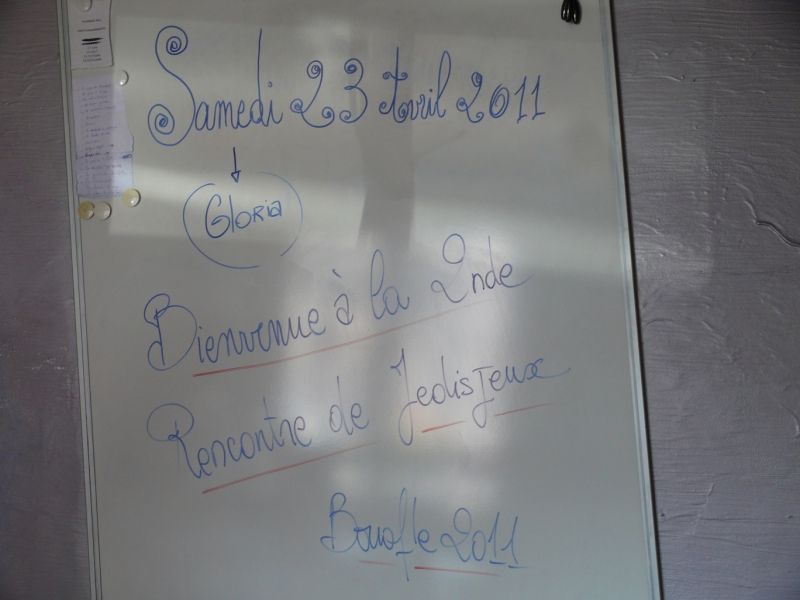 Samedi 23 Avril 2011
Gloria
Bienvenue à la 2nde
Rencontre de Jedisjeux
Bouafle 2011